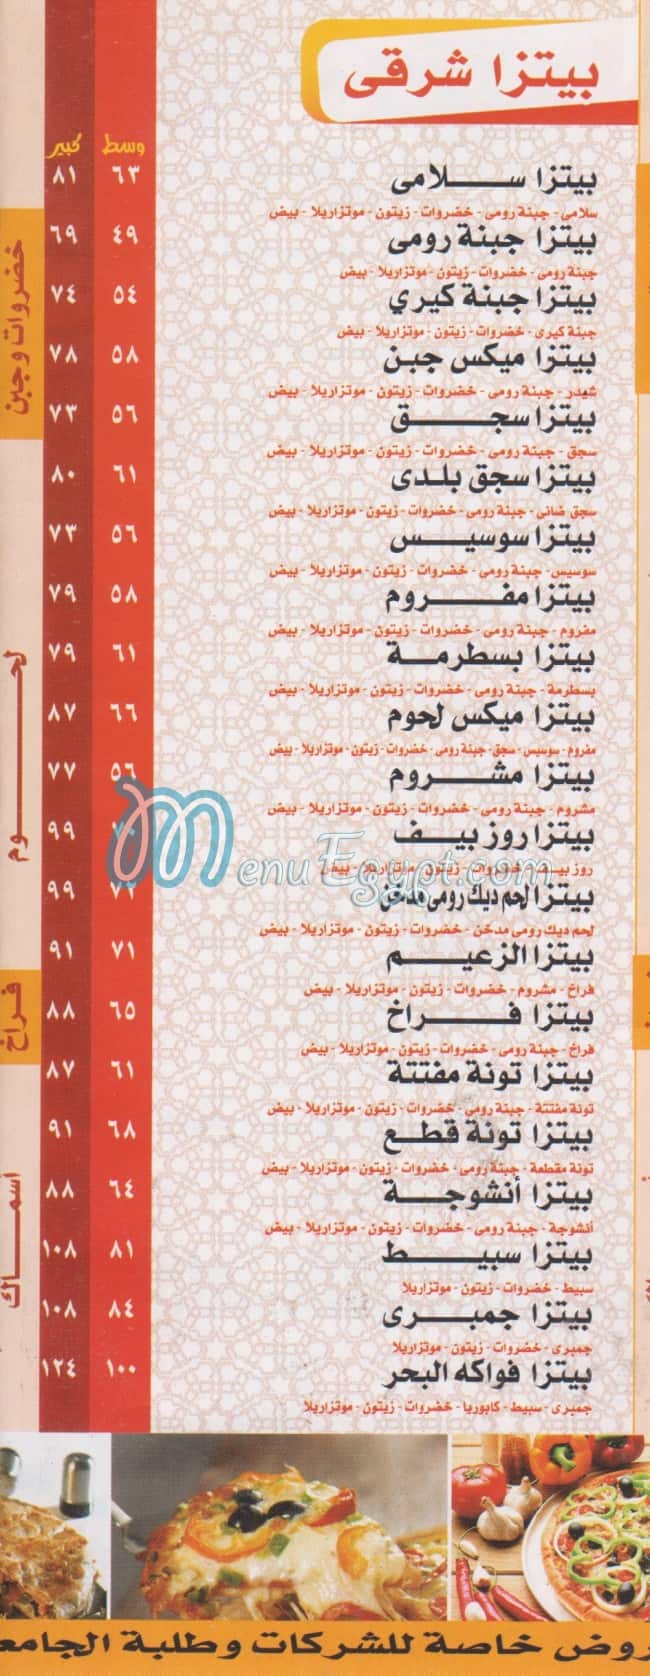 بيتزا شرقى
وسط كبير
بيتزا ســـلامى ٦٣ ٨١
سلامى - جبنة رومى - خضروات - زيتون - موتزاريلا - بيض
بيتزا جبنة رومى ٤٩ ٦٩
جبنة رومى - خضروات - زيتون - موتزاريلا - بيض
بيتزا جبنة كيري ٥٤ ٧٤
جبنة كيرى - خضروات - زيتون - موتزاريلا - بيض
بيتزا ميكس جبن ٥٨ ٧٨
شيدر - جبنة رومى - خضروات - زيتون - موتزاريلا - بيض
بيتزا سجـــق ٥٦ ٧٣
سجق - جبنة رومى - خضروات - زيتون - موتزاريلا - بيض
بيتزا سجق بلـدى ٦١ ٨٠
سجق ضانى - جبنة رومى - خضروات - زيتون - موتزاريلا - بيض
بيتزا سوسيـــس ٥٦ ٧٣
سوسيس - جبنة رومى - خضروات - زيتون - موتزاريلا - بيض
بيتزا مفــروم ٥٨ ٧٩
مفروم - جبنة رومى - خضروات - زيتون - موتزاريلا - بيض
بيتزا بسطرمـة ٦١ ٧٩
بسطرمة - جبنة رومى - خضروات - زيتون - موتزاريلا - بيض
بيتزا ميكس لحوم ٦٦ ٨٧
مفروم - سوسيس - سجق - جبنة رومى - خضروات - زيتون - موتزاريلا - بيض
بيتزا مشــروم ٥٦ ٧٧
مشروم - جبنة رومى - خضروات - زيتون - موتزاريلا - بيض
بيتزا روز بيــف ٩٩
روز بيف - خضروات - زيتون - موتزاريلا - بيض
بيتزا لحم ديك رومى مدخن ٧٢ ٩٩
لحم ديك رومى مدخن - خضروات - زيتون - موتزاريلا - بيض
بيتزا الزعيـــم ٧١ ٩١
فراخ - مشروم - خضروات - زيتون - موتزاريلا - بيض
بيتزا فــــراخ ٦٥ ٨٨
فراخ - جبنة رومى - خضروات - زيتون - موتزاريلا - بيض
بيتزا تونة مفتتة ٦١ ٨٧
تونة مفتتة - جبنة رومى - خضروات - زيتون - موتزاريلا - بيض
بيتزا تونة قطـع ٦٨ ٩١
تونة مقطعة - جبنة رومى - خضروات - زيتون - موتزاريلا - بيض
بيتزا أنشوجــة ٦٤ ٨٨
أنشوجة - جبنة رومى - خضروات - زيتون - موتزاريلا - بيض
بيتزا سبيـــط ٨١ ١٠٨
سبيط - خضروات - زيتون - موتزاريلا
بيتزا جمبــرى ٨٤ ١٠٨
جمبرى - خضروات - زيتون - موتزاريلا
بيتزا فواكه البحر ١٠٠ ١٢٤
جمبرى - سبيط - كابوريا - خضروات - زيتون - موتزاريلا
خضروات وجبن
لحـــــوم
فـراخ
أسمـــاك
MenuEgypt.com
روض خاصة للشركات وطلبة الجامع